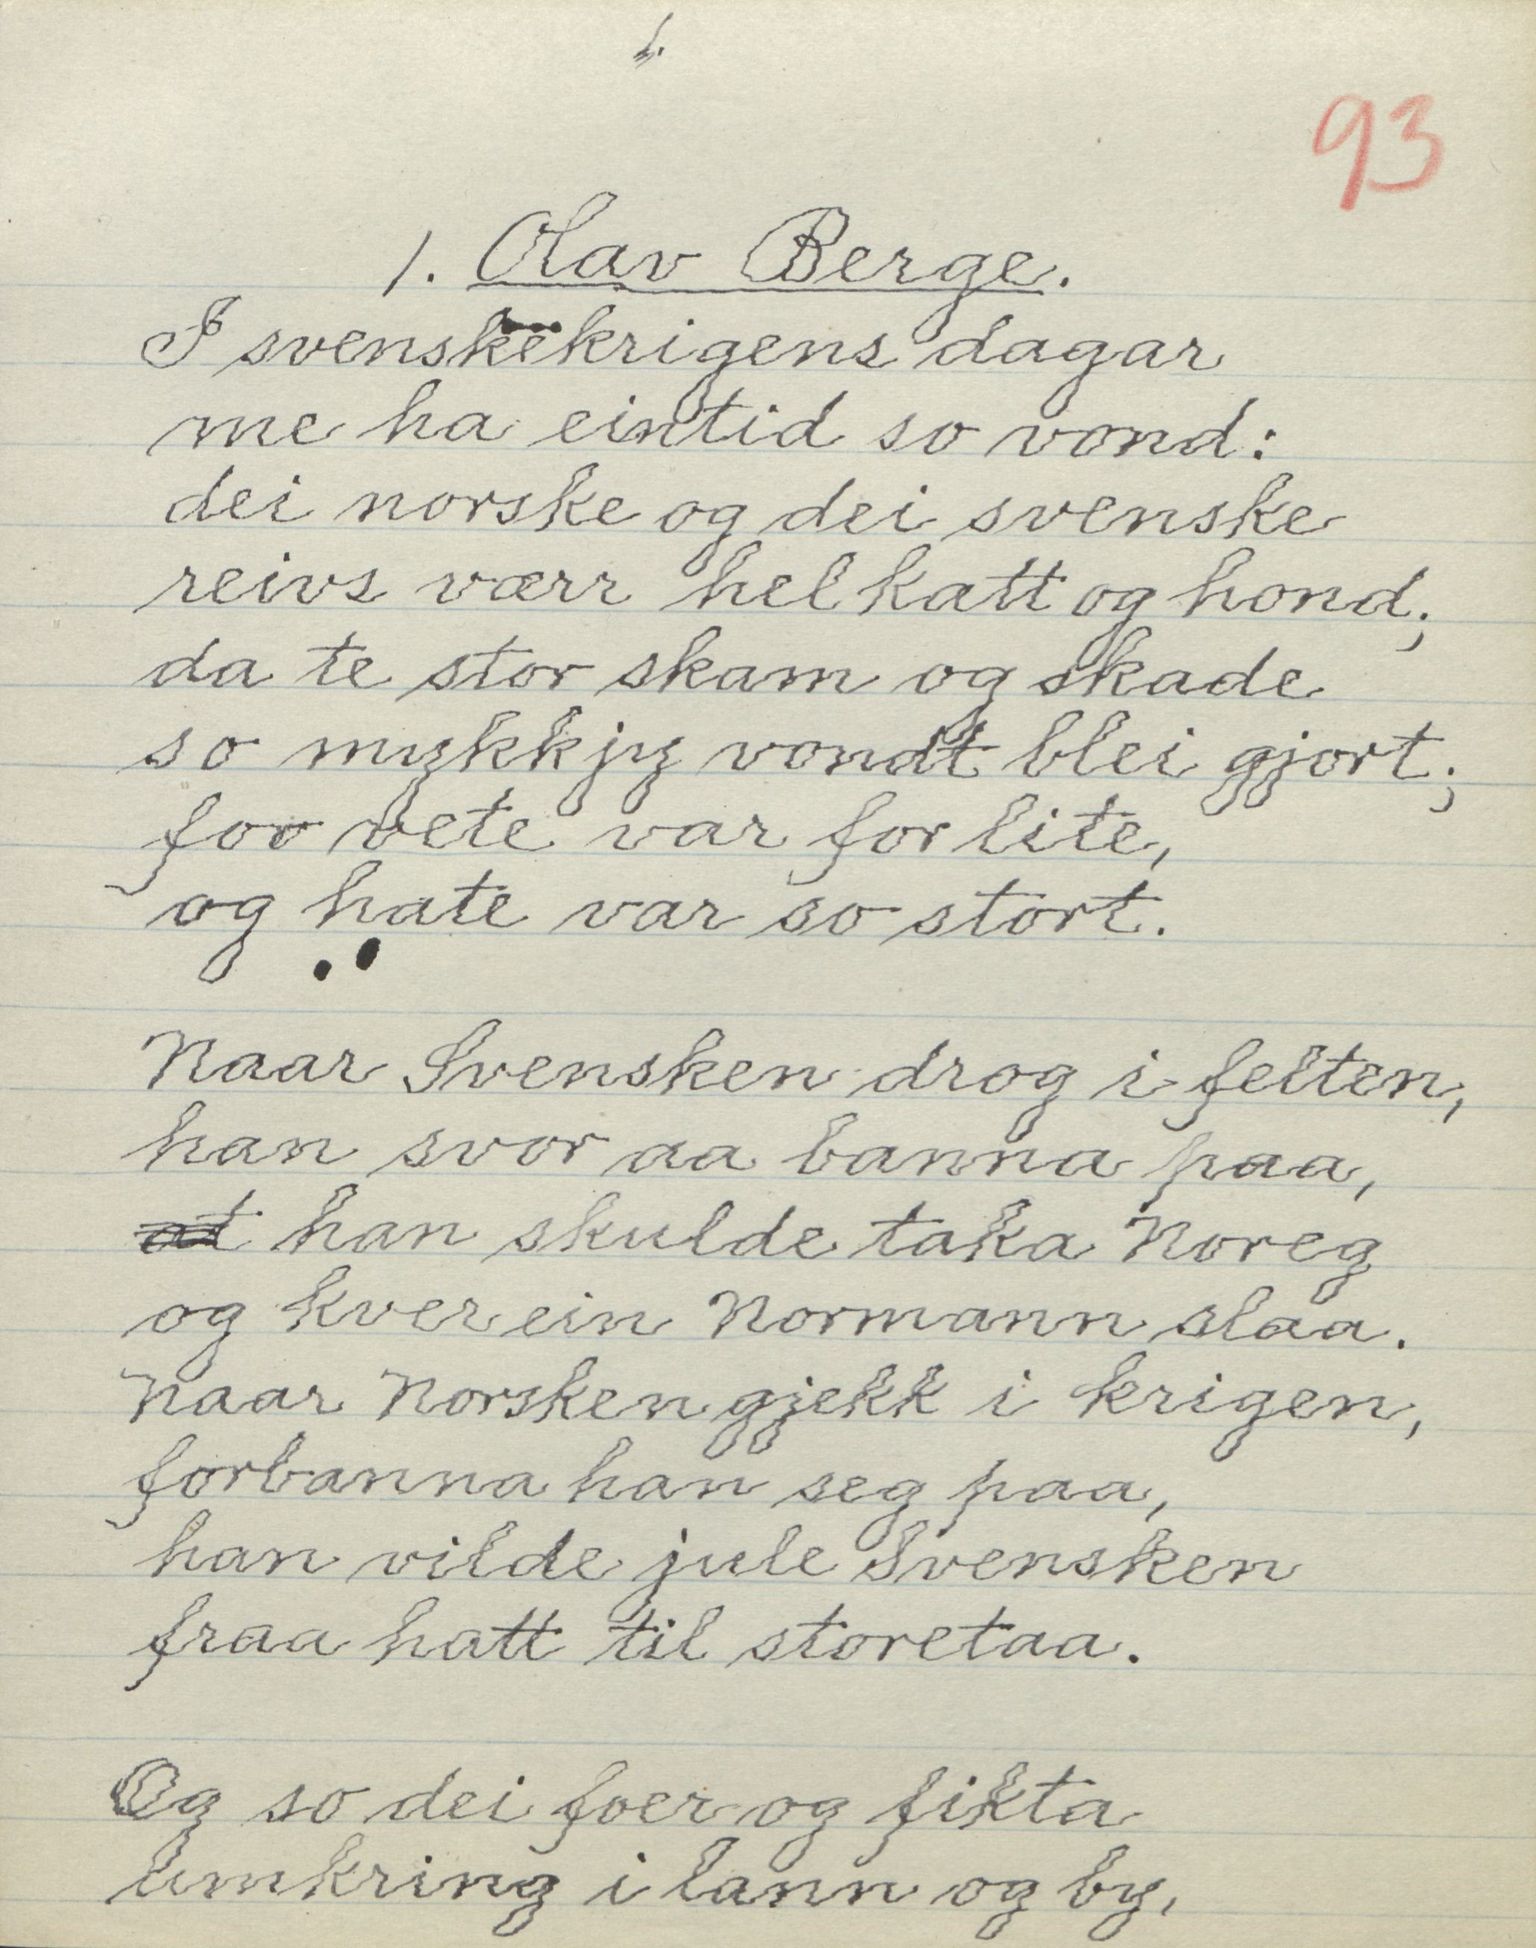 93
1. Olav Berge.
I svenskekrigens dagar
me ha ein tid so vond:
dei norske og dei svenske
reivs værr hel katt og hond;
da te stor skam og skade
so mykkjy vondt blei gjort;
for vete var for lite,
og hate var so stort.
Naar Svensken drog i felten,
han svor aa banna paa,
at han skulde taka Noreg
og kver ein Normann slaa.
Naar Norsken gjekk i krigen,
forbanna han seg paa,
han vilde jule Svensken
fraa hatt til storetaa.
Og so dei foer og fikta
umkring i lann og by,